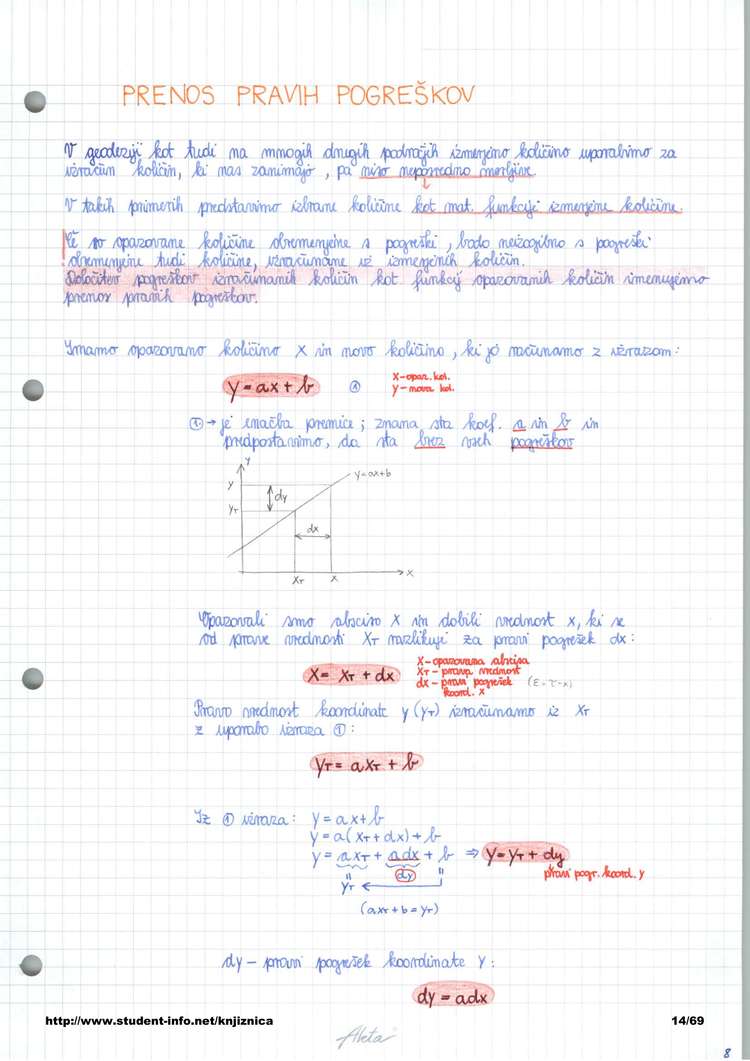 PRENOS PRAVIH POGREŠKOV
V geodeziji kot tudi na mnogih drugih področjih izmerjeno količino uporabimo za
izračun količin, ki nas zanimajo, pa niso neposredno merljive.
V takih primerih predstavimo izbrane količine kot mat. funkcije izmerjene količine.
Če so opazovane količine obremenjene s pogreški, bodo neizogibno s pogreški
obremenjene tudi količine, izračunane iz izmerjenih količin.
Določitev pogreškov izračunanih količin kot funkcij opazovanih količin imenujemo
prenos pravih pogreškov.
Imamo opazovano količino x in novo količino, ki jo računamo z izrazom:
y = ax + b ① x-opaz. kol.
y- nova kol.
① → je enačba premice; znana sta koef. a in b in
predpostavimo, da sta brez vseh pogreškov
y
y=ax+b
y
dy
yT
dx
xT x x
Opazovali smo absciso x in dobili vrednost x, ki se
od prave vrednosti xT razlikuje za pravi pogrešek dx:
x = xT + dx
x-opazovana abscisa
xT - prava vrednost
dx - pravi pogrešek (ε = τ - x)
koord. x
Pravo vrednost koordinate y (yT) izračunamo iz xT
z uporabo izraza ①:
yT = axT + b
Iz ① izraza: y = ax + b
y = a(xT + dx) + b
y = axT + adx + b ⇒ y = yT + dy
yT dy pravi pogr. koord. y
(axT + b = yT)
dy - pravi pogrešek koordinate y:
dy = adx
http://www.student-info.net/knjiznica 14/69
8